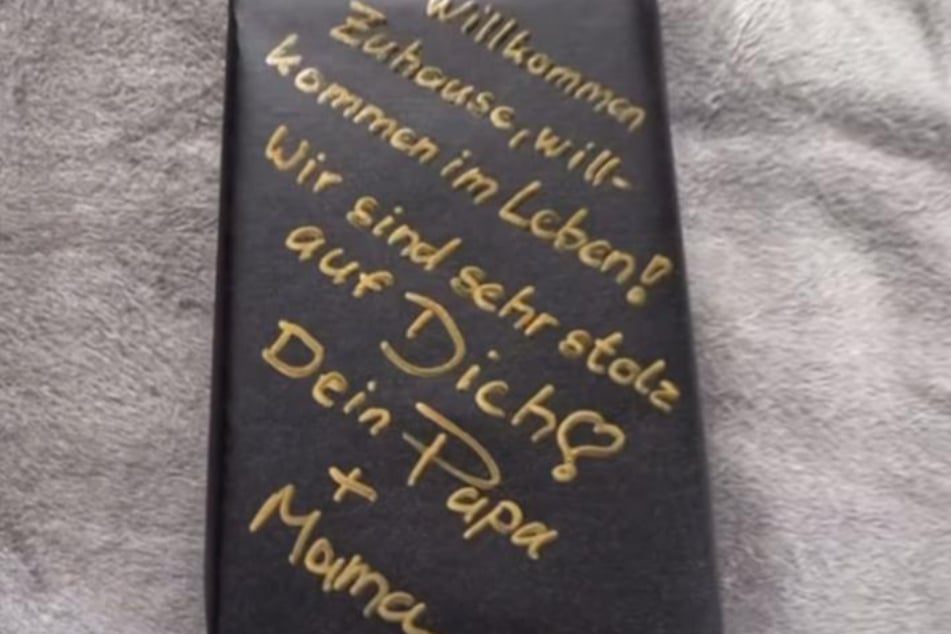 Willkommen
Zuhause, will-
kommen im Leben!
Wir sind sehr stolz
auf Dich!
Dein Papa
+
Mama